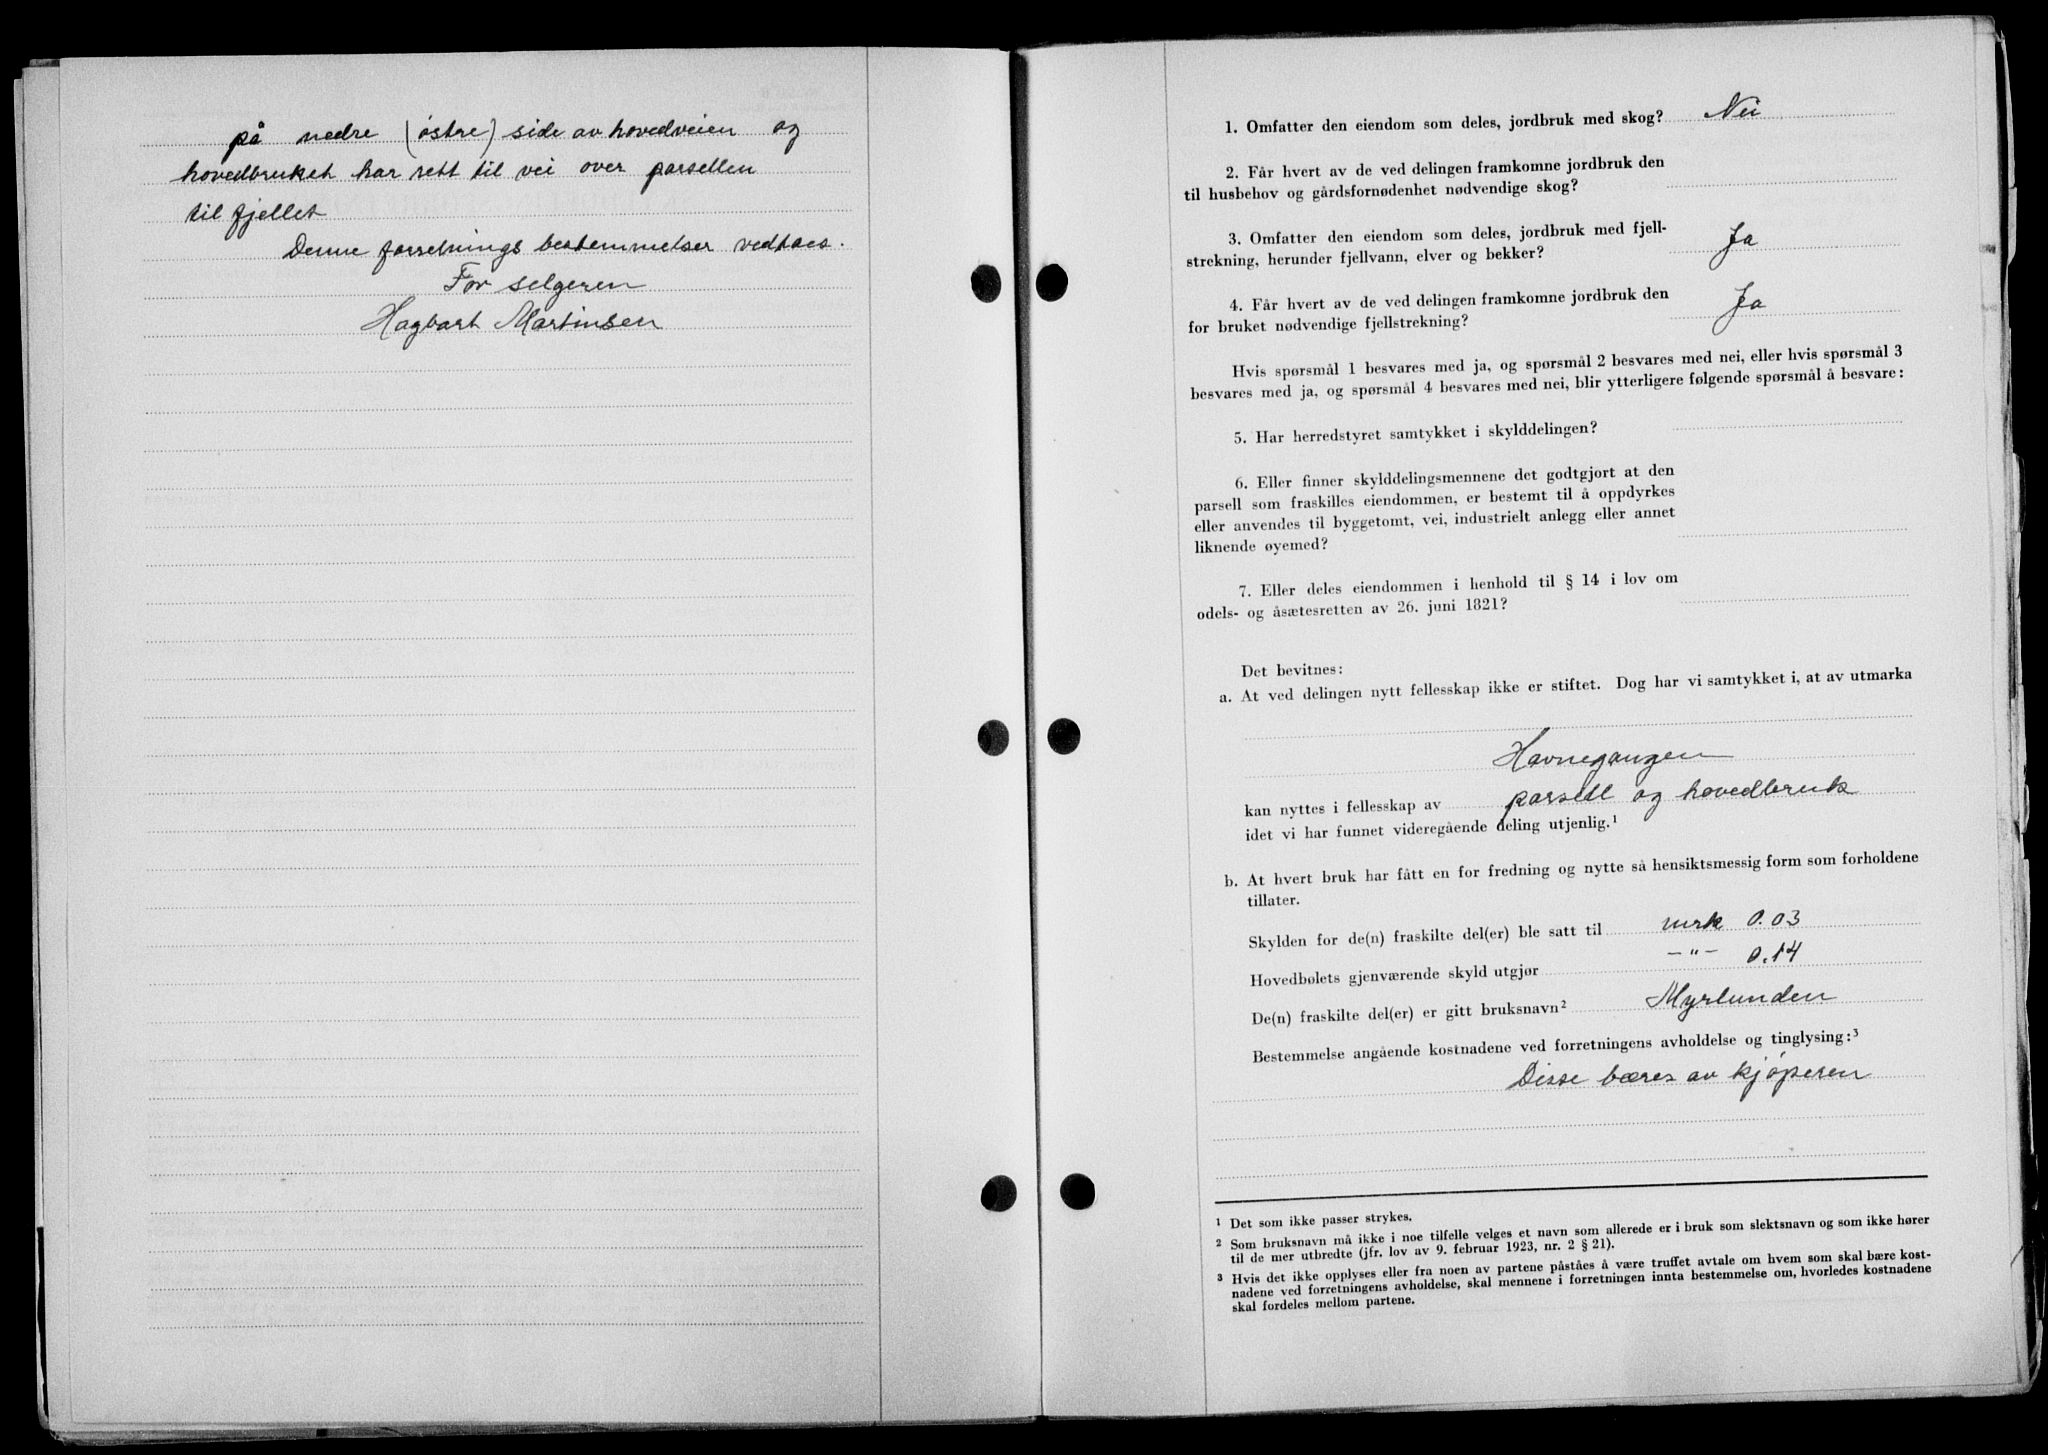 på nedre (östre) side av hovedveien og
hovedbruket har rett til vei over parsellen
til fjellet
Denne forretnings bestemmelser vedtaes.
For selgeren
Hagbart Martinsen
1. Omfatter den eiendom som deles, jordbruk med skog? Nei
2. Får hvert av de ved delingen framkomne jordbruk den
til husbehov og gårdsfornødenhet nødvendige skog?
3. Omfatter den eiendom som deles, jordbruk med fjell-
strekning, herunder fjellvann, elver og bekker? Ja
4. Får hvert av de ved delingen framkomne jordbruk den
for bruket nødvendige fjellstrekning? Ja
Hvis spørsmål 1 besvares med ja, og spørsmål 2 besvares med nei, eller hvis spørsmål 3
besvares med ja, og spørsmål 4 besvares med nei, blir ytterligere følgende spørsmål å besvare:
5. Har herredstyret samtykket i skylddelingen?
6. Eller finner skylddelingsmennene det godtgjort at den
parsell som fraskilles eiendommen, er bestemt til å oppdyrkes
eller anvendes til byggetomt, vei, industrielt anlegg eller annet
liknende øyemed?
7. Eller deles eiendommen i henhold til § 14 i lov om
odels- og åsætesretten av 26. juni 1821?
Det bevitnes:
a. At ved delingen nytt fellesskap ikke er stiftet. Dog har vi samtykket i, at av utmarka
Havnegangen
kan nyttes i fellesskap av parsell og hovedbruk
idet vi har funnet videregående deling utjenlig.¹
b. At hvert bruk har fått en for fredning og nytte så hensiktsmessig form som forholdene
tillater.
Skylden for de(n) fraskilte del(er) ble satt til mrk 0.03
Hovedbølets gjenværende skyld utgjør -"- 0.14
De(n) fraskilte del(er) er gitt bruksnavn² Myrlunden
Bestemmelse angående kostnadene ved forretningens avholdelse og tinglysing:³
Disse bæres av kjöperen
¹ Det som ikke passer strykes.
² Som bruksnavn må ikke i noe tilfelle velges et navn som allerede er i bruk som slektsnavn og som ikke hører
til de mer utbredte (jfr. lov av 9. februar 1923, nr. 2 § 21).
³ Hvis det ikke opplyses eller fra noen av partene påståes å være truffet avtale om hvem som skal bære kost-
nadene ved forretningens avholdelse, skal mennene i forretningen innta bestemmelse om, hvorledes kostnadene
skal fordeles mellom partene.